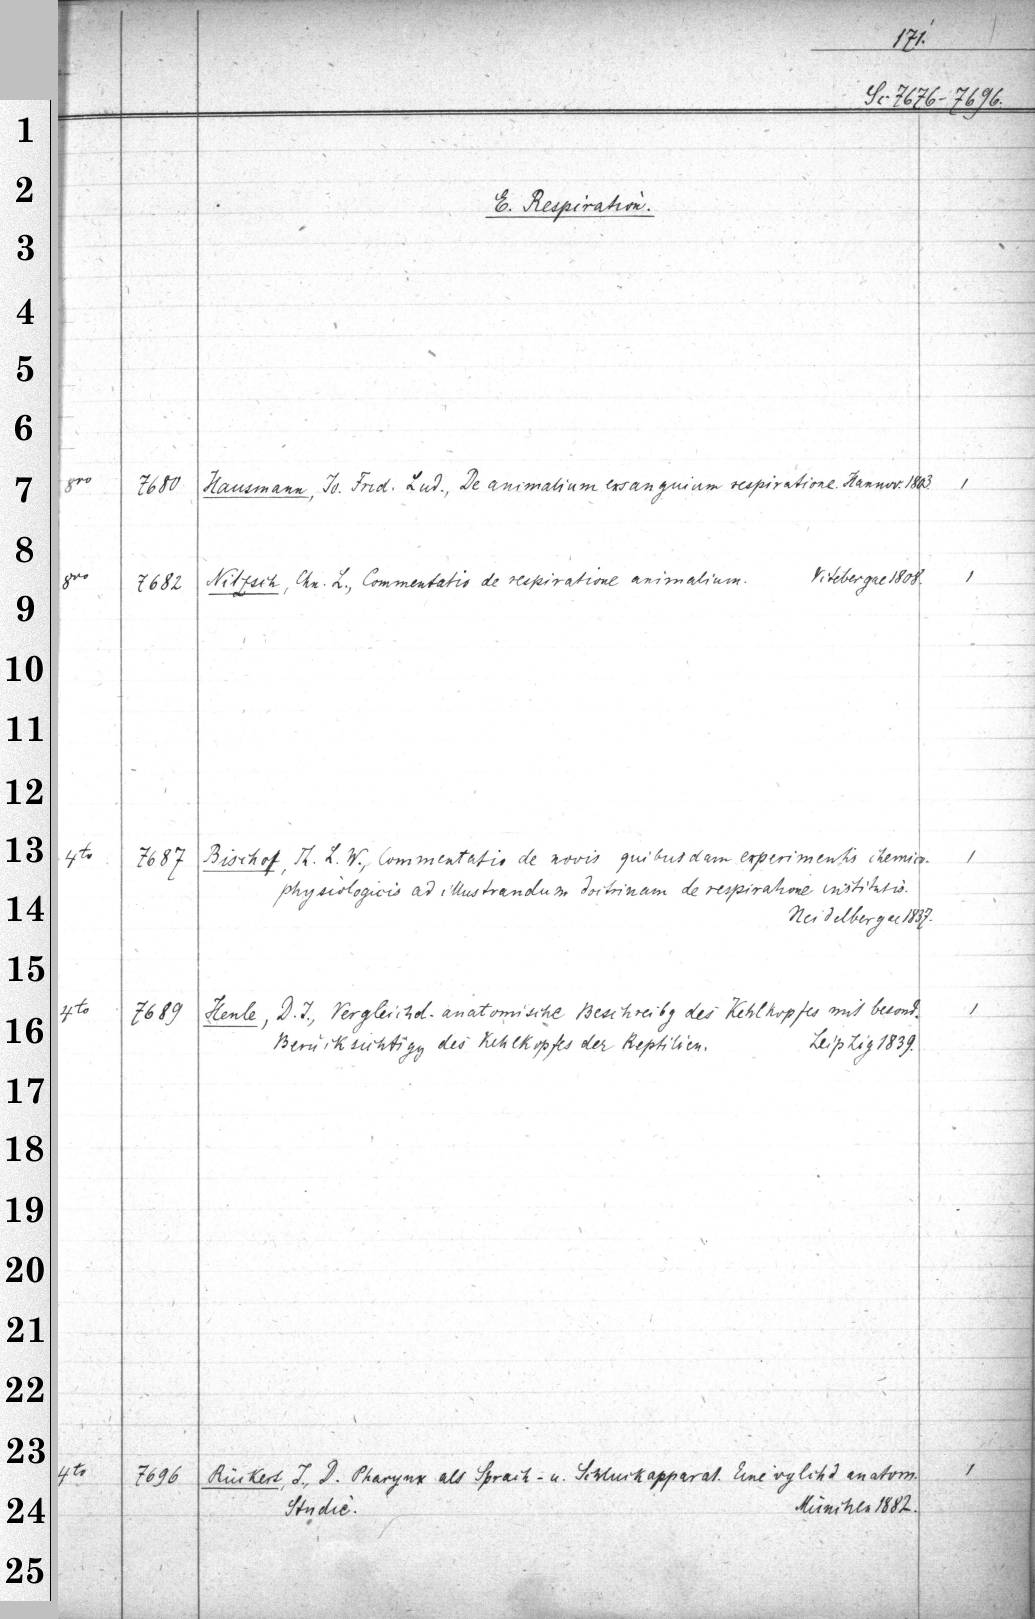 171.
Sc 7676-7696.
1
2
E. Respiration.
3
4
5
6
7
8vo 7680 Hausmann, Jo. Frid. Lud., De animalium exsanguium respiratione. Hannov. 1803. 1
8
8vo 7682 Nitzsch, Chn. L., Commentatio de respiratione animalium. Vitebergae 1808. 1
9
10
11
12
13
4to 7687 Bischof, Th. L. W., Commentatio de novis quibusdam experimentis chemico-
physiologicis ad illustrandum doctrinam de respiratione institutis.
14
Heidelbergae 1837.
15
4to 7689 Henle, D. J., Vergleichd-anatomische Beschreibg des Kehlkopfes mit besond.
16
Berücksichtigg des Kehlkopfes der Reptilien. Leipzig 1839.
17
18
19
20
21
22
23
4to 7696 Rückert, J., D. Pharynx als Sprach- u. Schluckapparat. Eine vglchd anatom.
24
Studie. München 1882.
25